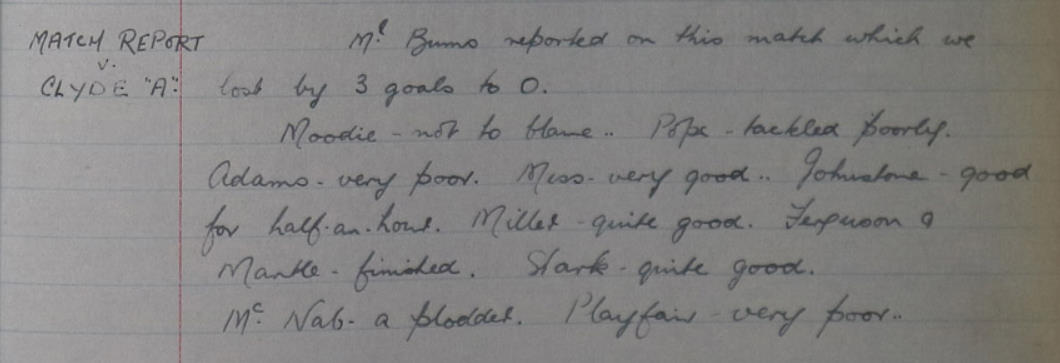 MATCH REPORT Mr Burns reported on this match which we
v.
CLYDE "A": lost by 3 goals to 0.
Moodie - not to blame.. Pope - tackled poorly.
Adams - very poor. Miss - very good.. Johnstone - good
for half-an-hour. Miller - quite good. Ferguson &
Mantle - finished. Stark - quite good.
Mc. Nab - a plodder. Playfair - very poor..